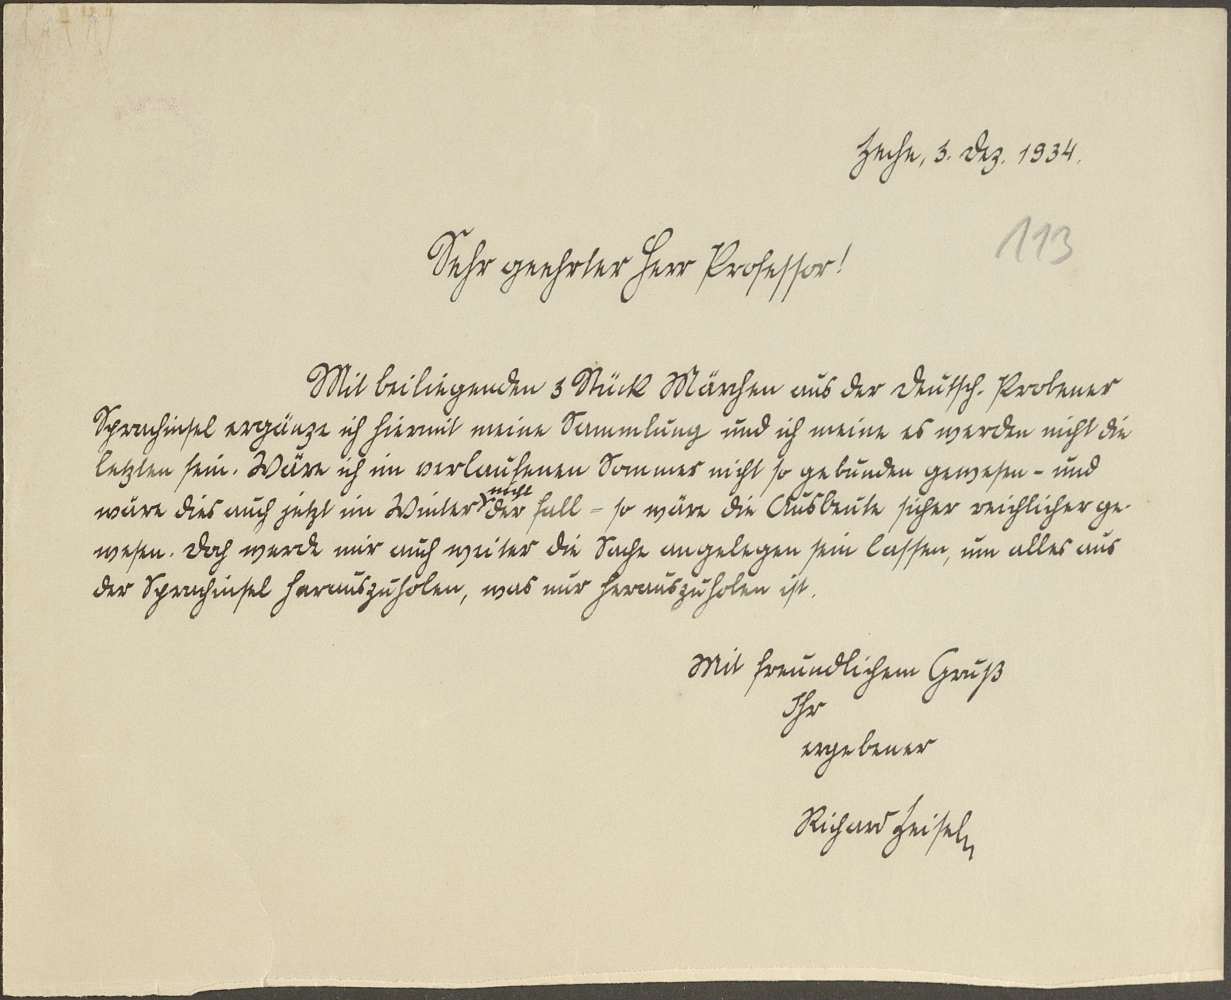 Zeche, 3. Dez. 1934.
113
Sehr geehrter Herr Professor!
Mit beiliegenden 3 Stück Märchen aus der Deutsch. Probener
Sprachinsel ergänze ich hiermit meine Sammlung und ich meine es werden nicht die
letzten sein. Wäre ich im verlaufenen Sommer nicht so gebunden gewesen – und
wäre dies auch jetzt im Winter nicht der Fall – so wäre die Ausbeute sicher reichlicher ge-
wesen. Doch werde mir auch weiter die Sache angelegen sein lassen, um alles aus
der Sprachinsel herauszuholen, was nur herauszuholen ist.
Mit freundlichem Gruß
Ihr
ergebener
Richard Zeisel